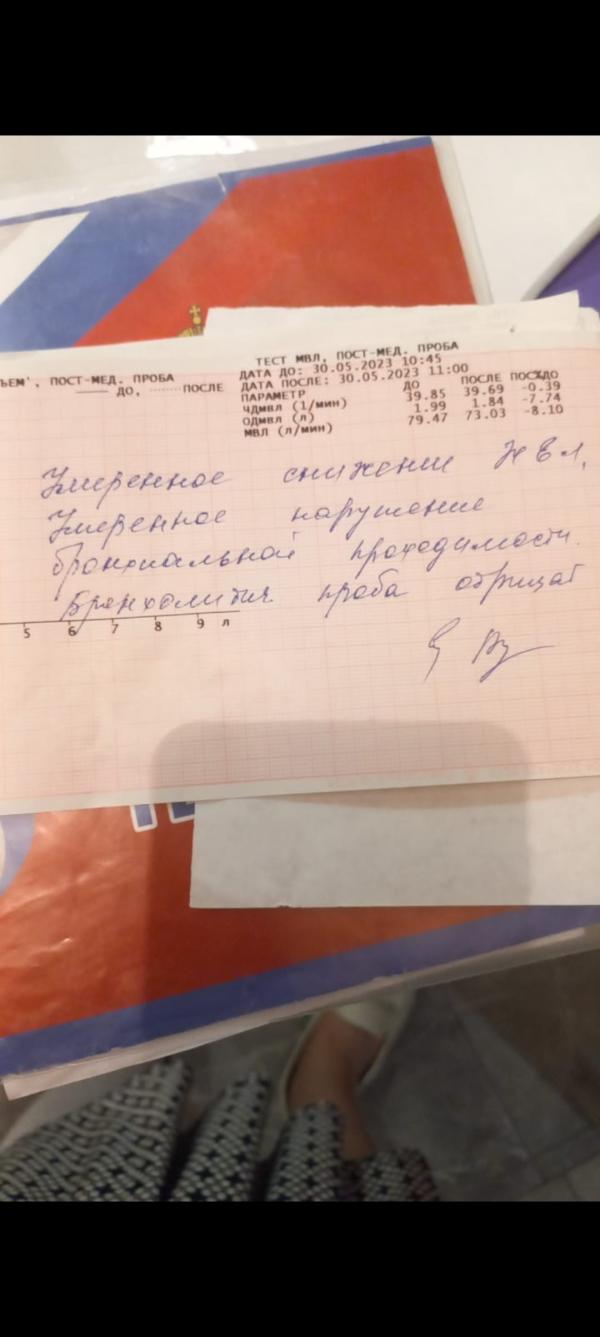 ТЕСТ МВЛ, ПОСТ-МЕД. ПРОБА
ЪЕМ', ПОСТ-МЕД. ПРОБА
ДО, ПОСЛЕ
ДАТА ДО: 30.05.2023 10:45
ДАТА ПОСЛЕ: 30.05.2023 11:00
ПАРАМЕТР ДО ПОСЛЕ ПОСЛ%ДО
ЧДМВЛ (1/мин) 39.85 39.69 -0.39
ОДМВЛ (л) 1.99 1.84 -7.74
МВЛ (л/мин) 79.47 73.03 -8.10
Умеренное снижение ЖЕЛ,
Умеренное нарушение
бронхиальной проходимости.
Бронхолитич проба отрицат
5 6 7 8 9 л